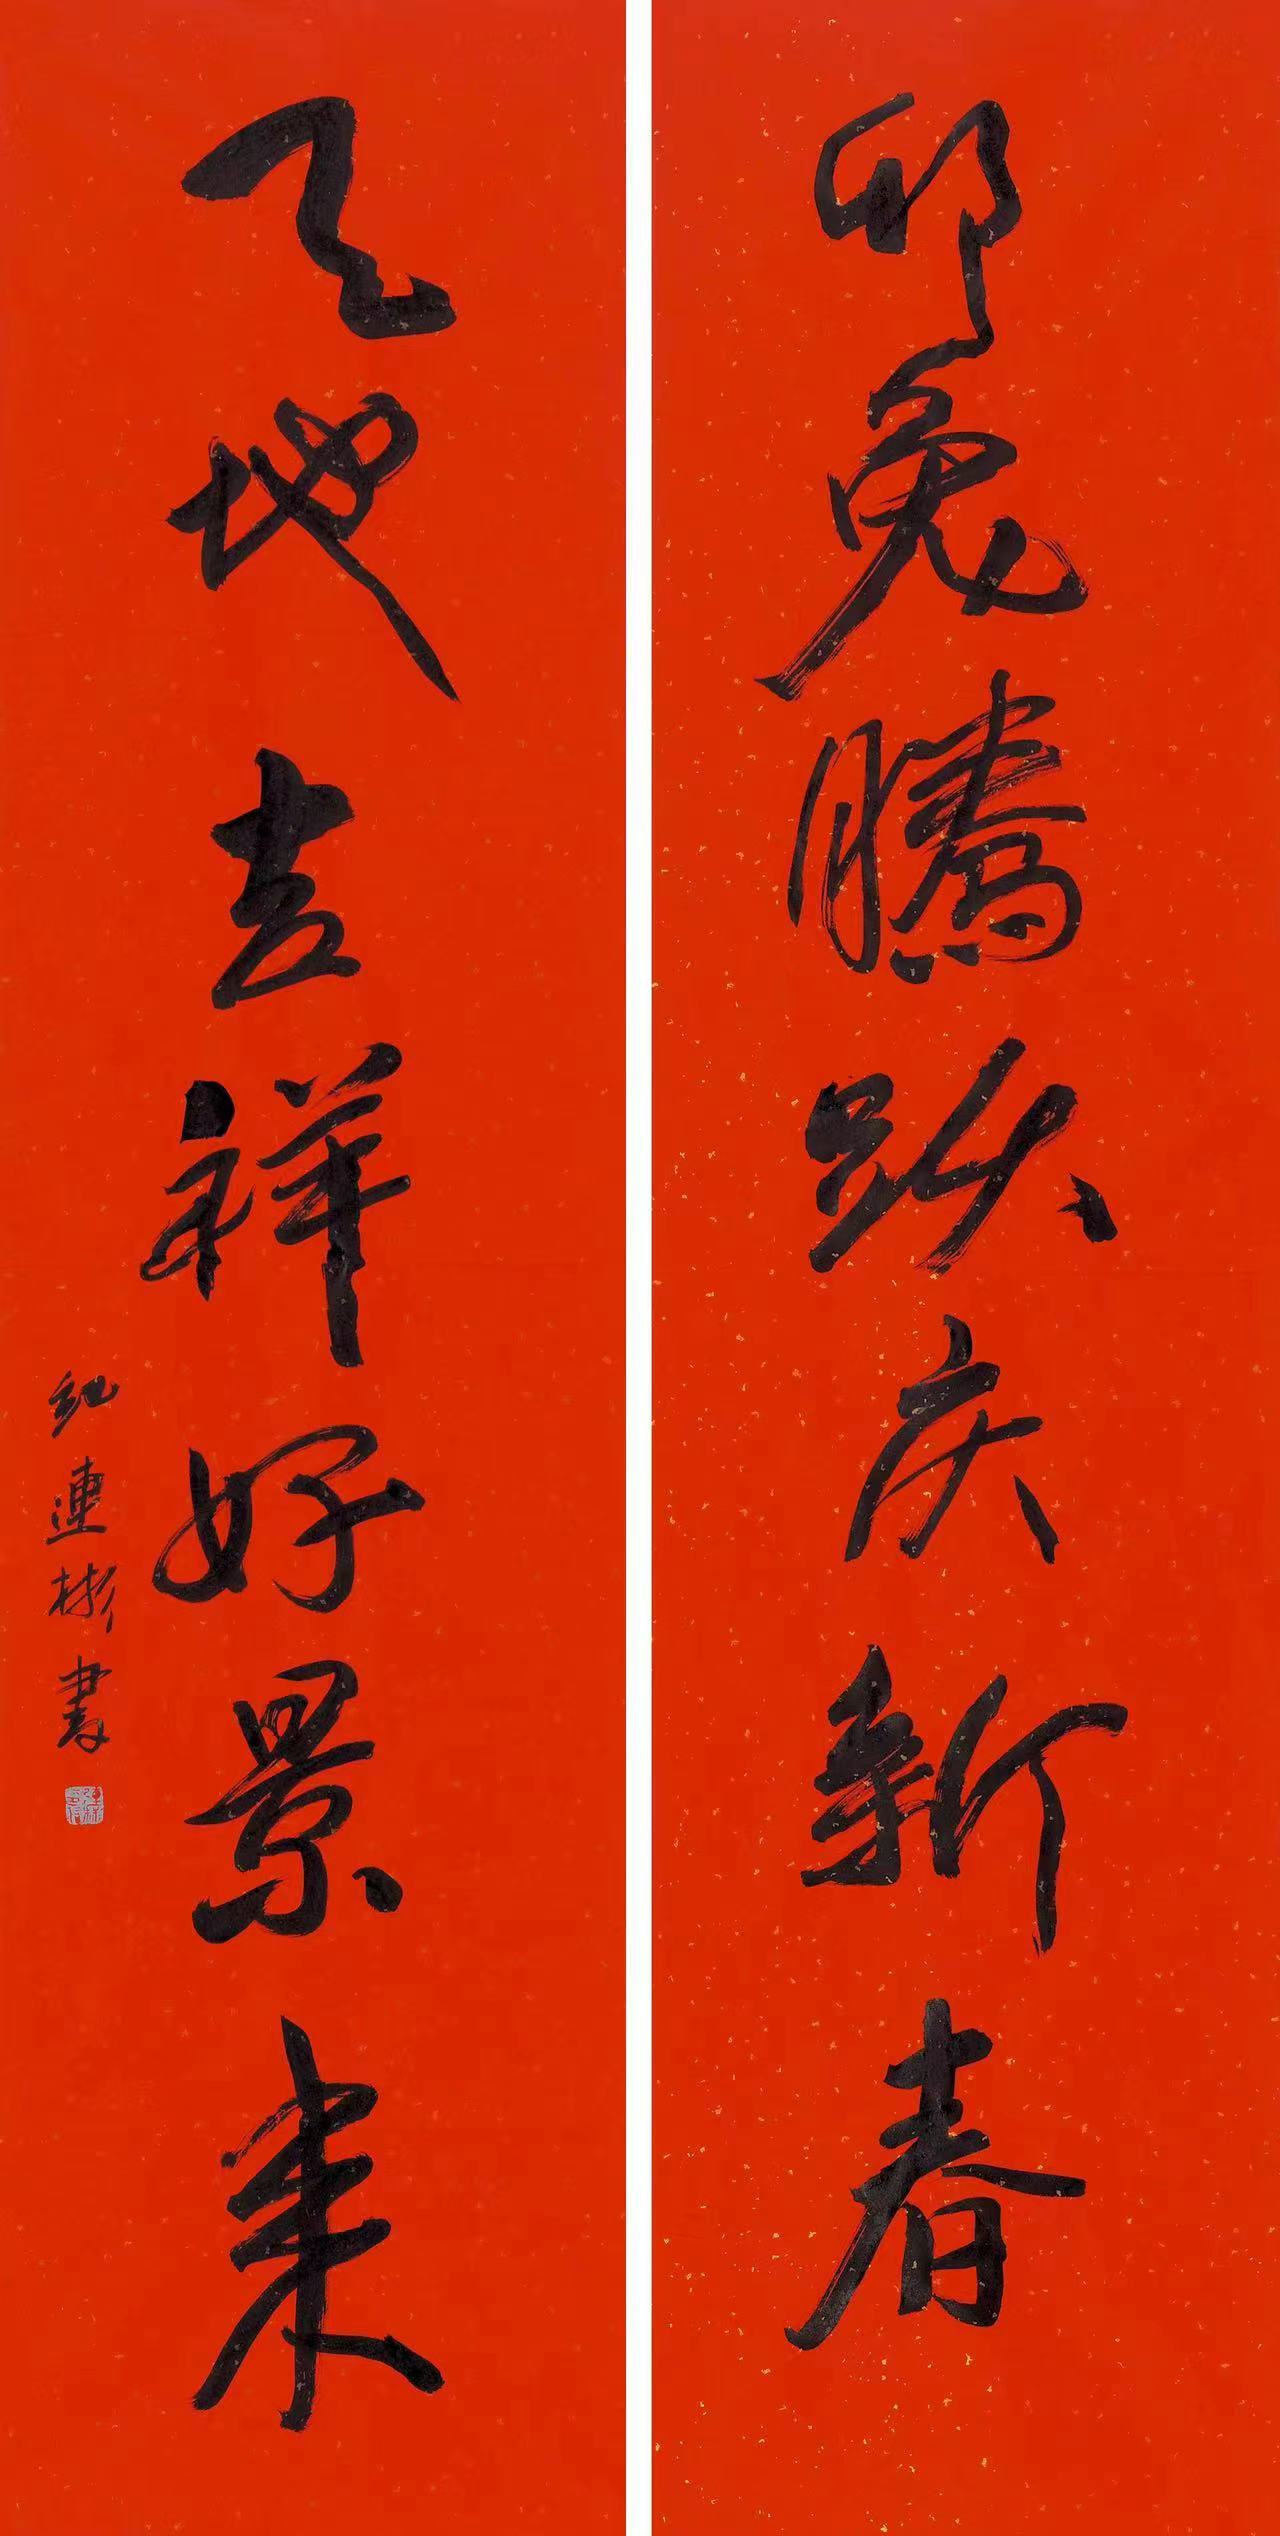 卯兔腾跃庆新春
天地吉祥好景来
纪連彬書